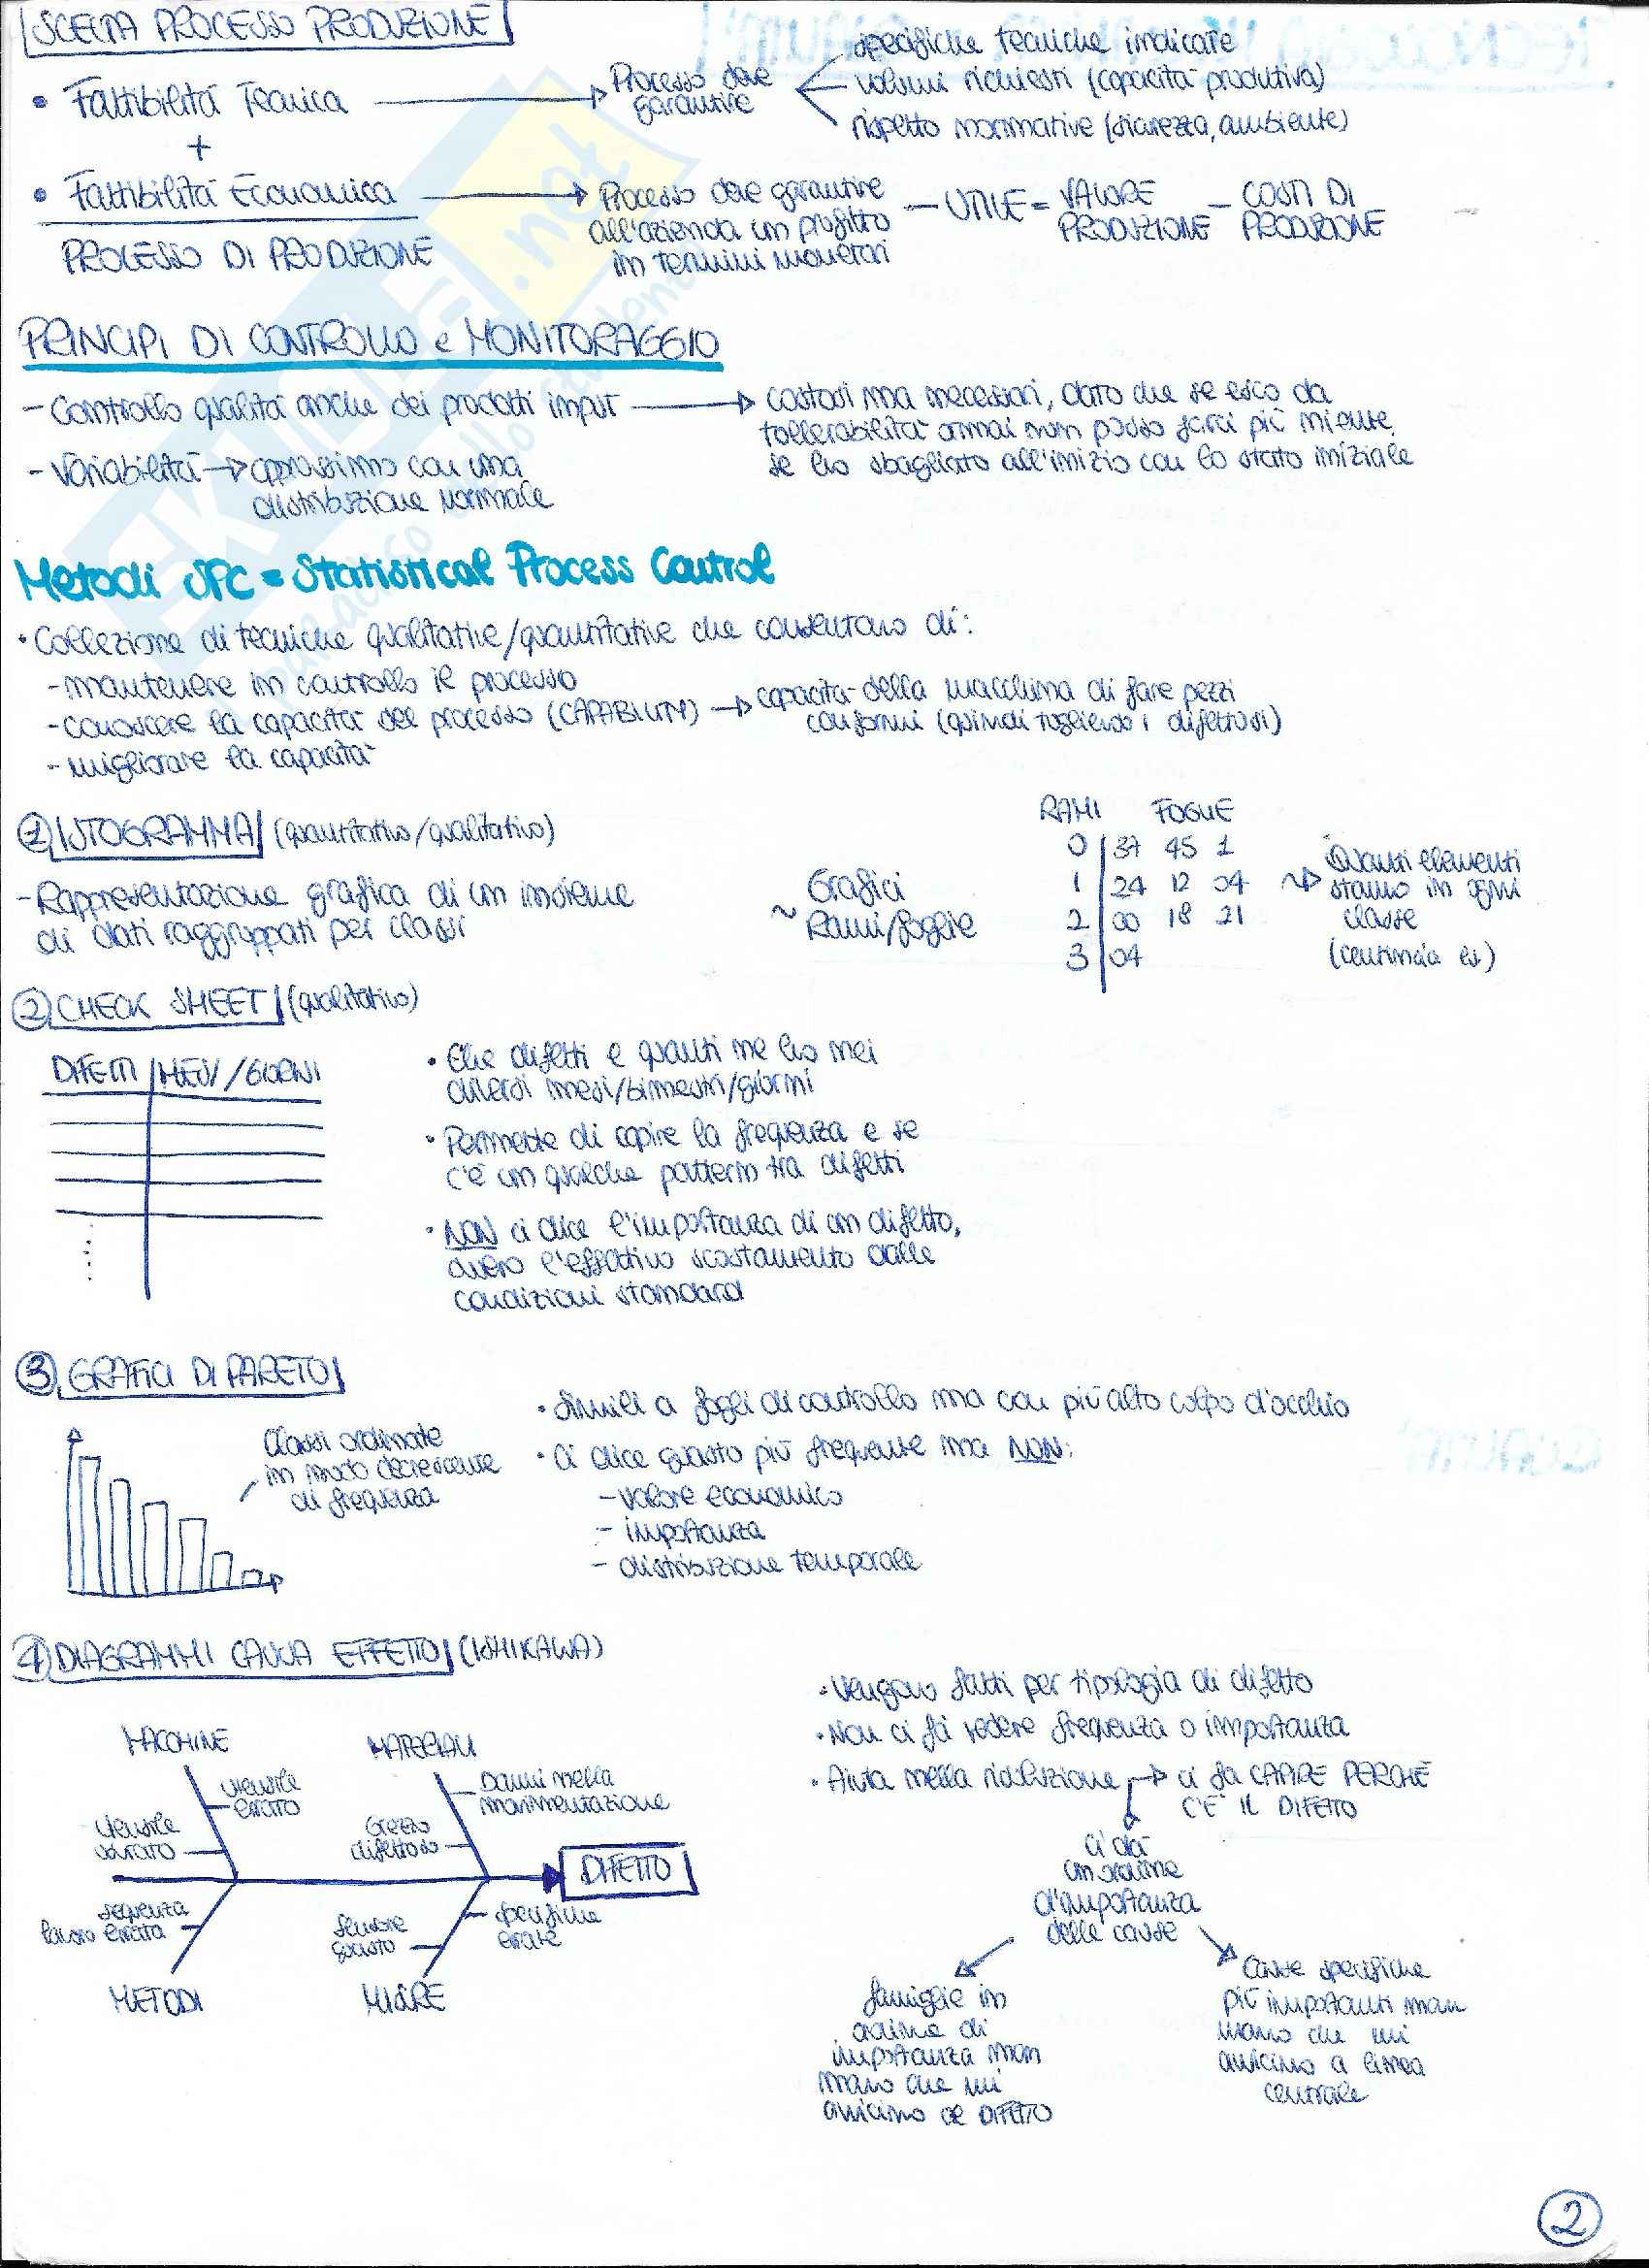 SCELTA PROCESSO PRODUZIONE
• Fattibilità Tecnica
Processo deve garantire
specifiche tecniche indicate
volumi richiesti (capacità produttiva)
rispetto normative (sicurezza, ambiente)
+
• Fattibilità Economica
Processo deve garantire
all'azienda un profitto
in termini monetari
— UTILE = VALORE PRODUZIONE — COSTI DI PRODUZIONE
PROCESSO DI PRODUZIONE
PRINCIPI DI CONTROLLO e MONITORAGGIO
- Controllo qualità anche dei prodotti input
costosi ma necessari, dato che se esco da
tollerabilità ormai non posso farci più niente,
se ho sbagliato all'inizio con lo stato iniziale
- Variabilità → approssimo con una
distribuzione normale
Metodi SPC = Statistical Process Control
• Collezione di tecniche qualitative/quantitative che consentano di:
- mantenere in controllo il processo
- conoscere la capacità del processo (CAPABILITY) → capacità della macchina di fare pezzi
conformi (quindi togliendo i difettosi)
- migliorare la capacità
① ISTOGRAMMA (quantitativo/qualitativo)
- Rappresentazione grafica di un insieme
di dati raggruppati per classi
~ Grafici
Rami/foglie
RAMI FOGLIE
0 | 37 45 1
1 | 24 12 04
2 | 00 18 21
3 | 04
Quanti elementi
stanno in ogni
classe
(centinaia es)
② CHECK SHEET (qualitativo)
DIFETTI | MESI / GIORNI
• Che difetti e quanti ne ho nei
diversi mesi/bimestri/giorni
• Permette di capire la frequenza e se
c'è un qualche pattern tra difetti
• NON ci dice l'importanza di un difetto,
ovvero l'effettivo scostamento dalle
condizioni standard
③ GRAFICI DI PARETO
Classi ordinate
in modo decrescente
di frequenza
• Simili a fogli di controllo ma con più alto colpo d'occhio
• Ci dice guasto più frequente ma NON:
- valore economico
- importanza
- distribuzione temporale
④ DIAGRAMMI CAUSA EFFETTO (ISHIKAWA)
MACCHINE
MATERIALI
utensile
errato
utensile
usurato
Danni nella
movimentazione
Grezzo
difettoso
DIFETTO
sequenza
lavoro errata
sensore
guasto
specifiche
errate
METODI
MISURE
• Vengono fatti per tipologia di difetto
• Non ci fa vedere frequenza o importanza
• Aiuta nella risoluzione → ci fa CAPIRE PERCHÉ
C'È IL DIFETTO
ci dà
un ordine
d'importanza
delle cause
famiglie in
ordine di
importanza man
mano che mi
avvicino al DIFETTO
Cause specifiche
più importanti man
mano che mi
avvicino a linea
centrale
2